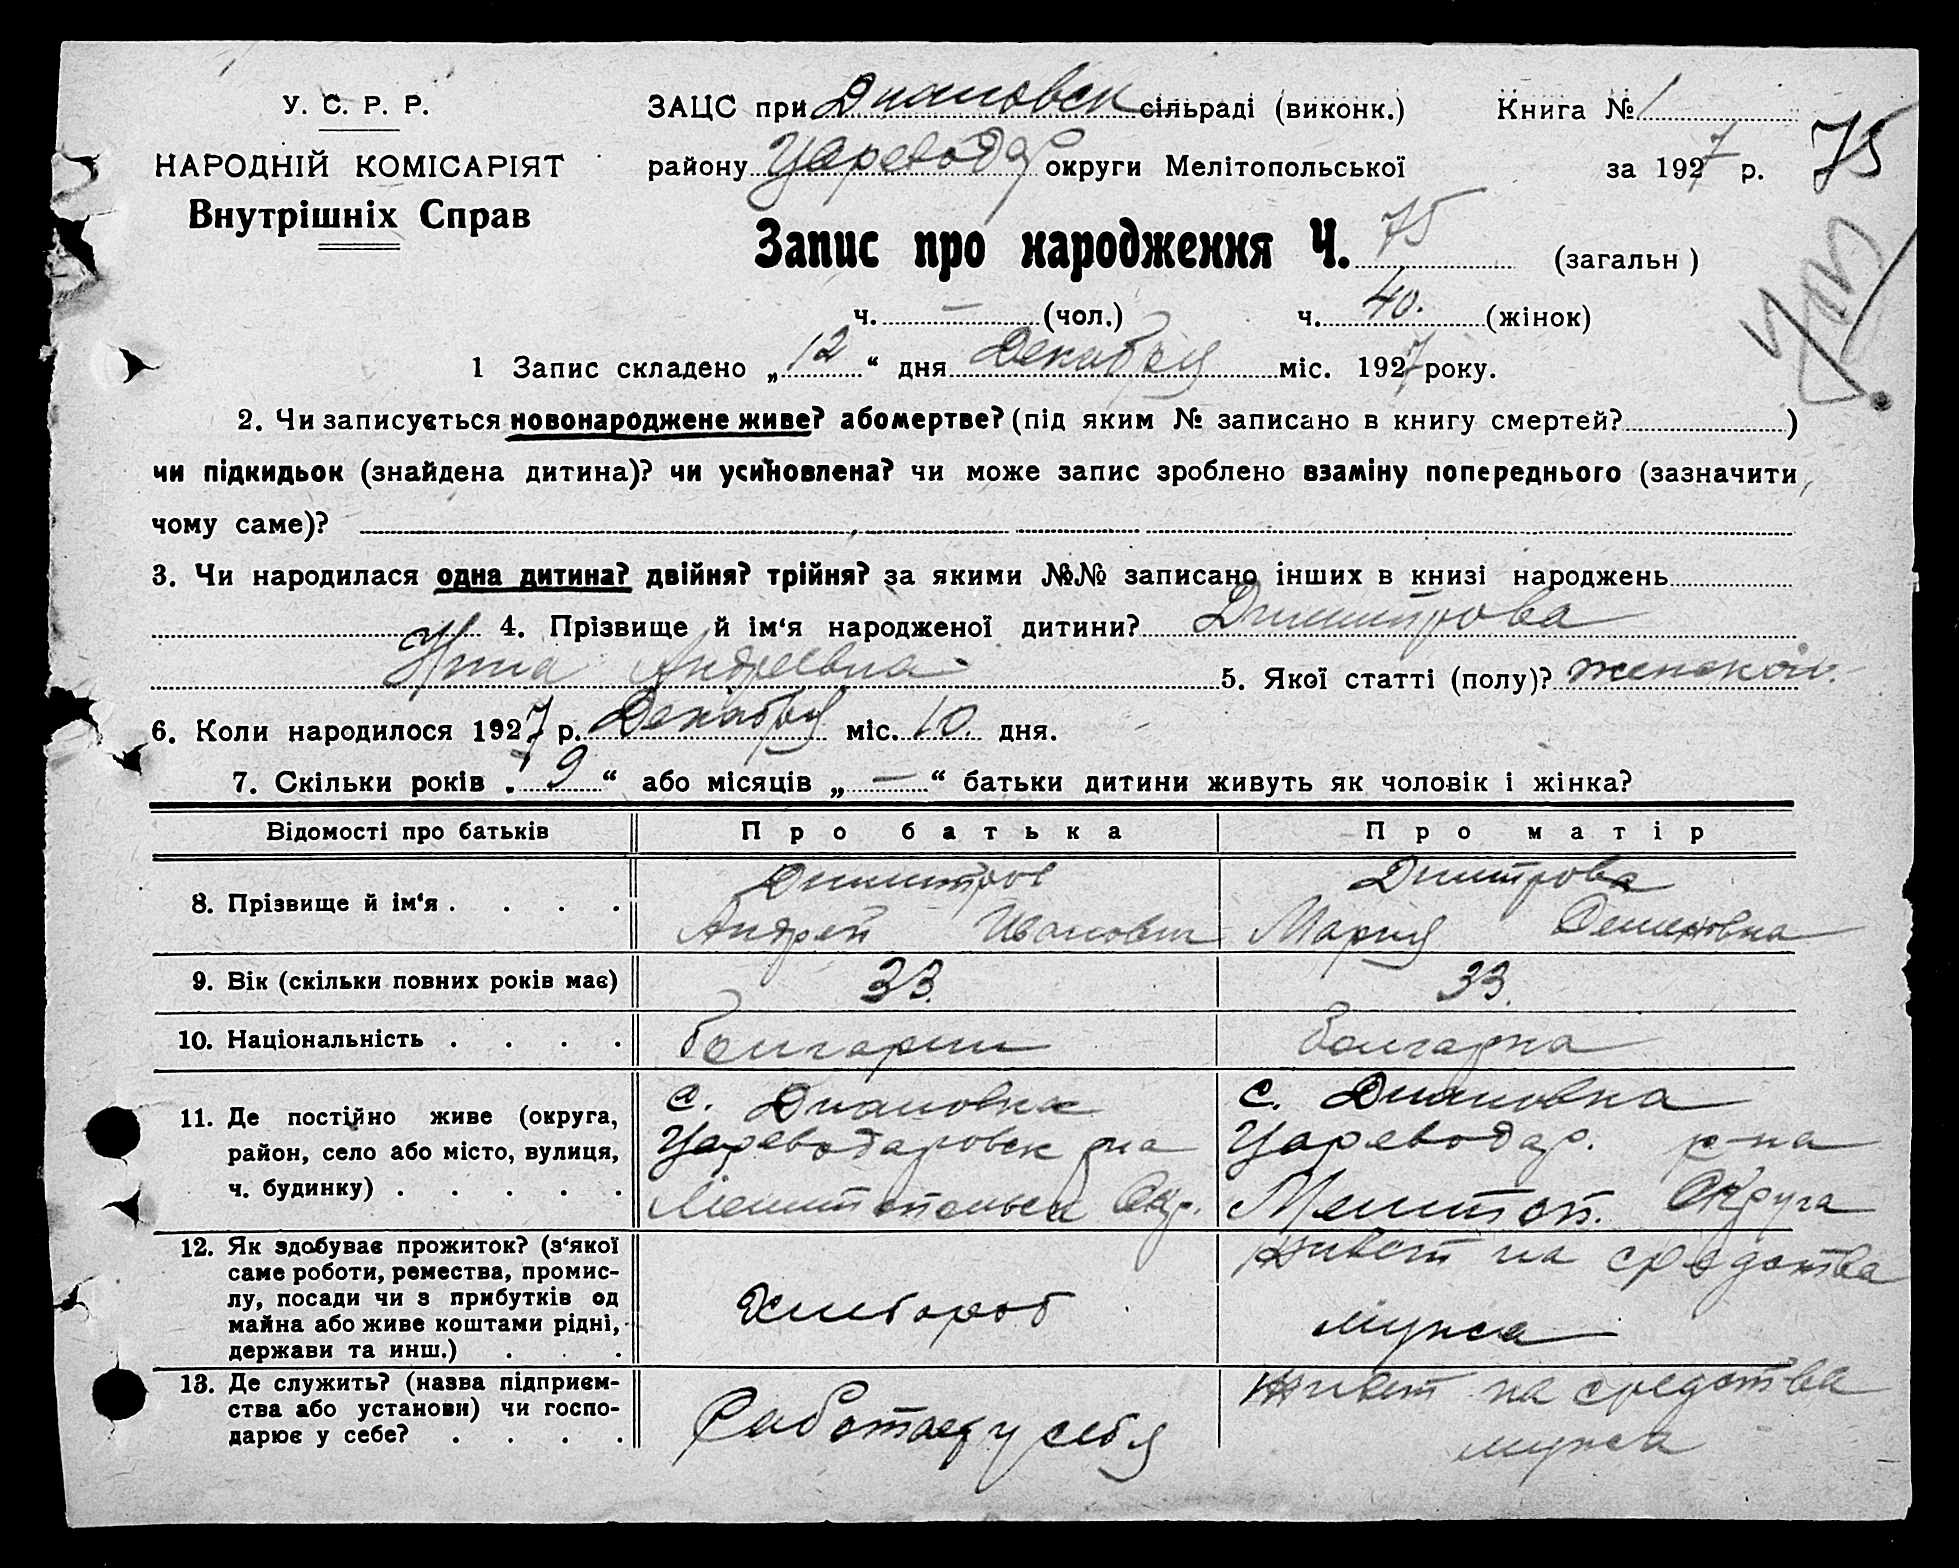 У. С. Р. Р.
НАРОДНІЙ КОМІСАРІЯТ
Внутрішніх Справ
ЗАЦС при Диановск сільраді (виконк.) Книга № 1
району Цареводар округи Мелітопольської за 1927 р.
75
Запис про народження Ч. 75 (загальн )
ч. — (чол.) ч. 40. (жінок)
1 Запис складено „ 12 “ дня Декабря міс. 1927 року.
2. Чи записується новонароджене живе? або мертве? (під яким № записано в книгу смертей? )
чи підкидьок (знайдена дитина)? чи усиновлена? чи може запис зроблено взаміну попереднього (зазначити,
чому саме)?
3. Чи народилася одна дитина? двійня? трійня? за якими №№ записано інших в книзі народжень
4. Прізвище й ім‘я народженої дитини? Димитрова
Андреевна 5. Якої статті (полу)? женской.
6. Коли народилося 1927 р. Декабря міс. 10. дня.
7. Скільки років „ 9 “ або місяців „ — “ батьки дитини живуть як чоловік і жінка?
Відомості про батьків Про батька Про матір
8. Прізвище й ім‘я . . . .
Димитров
Андрей Иванович
Дмитрова
Мария Семеновна
9. Вік (скільки повних років має) 33. 33.
10. Національність . . . . болгарин болгарка
11. Де постійно живе (округа,
район, село або місто, вулиця,
ч. будинку) . . . . .
с. Диановка
Цареводаровск рна
Мелитопольск Окр.
с. Диановка
Цареводар. р-на
Мелитоп. Округа
12. Як здобуває прожиток? (з‘якої
саме роботи, ремества, промис-
лу, посади чи з прибутків од
майна або живе коштами рідні,
держави та инш.) . . .
Хлебороб
живет на средства
мужа
13. Де служить? (назва підприєм-
ства або установи) чи госпо-
дарює у себе? . . . .
Работает у себя
живет на средства
мужа